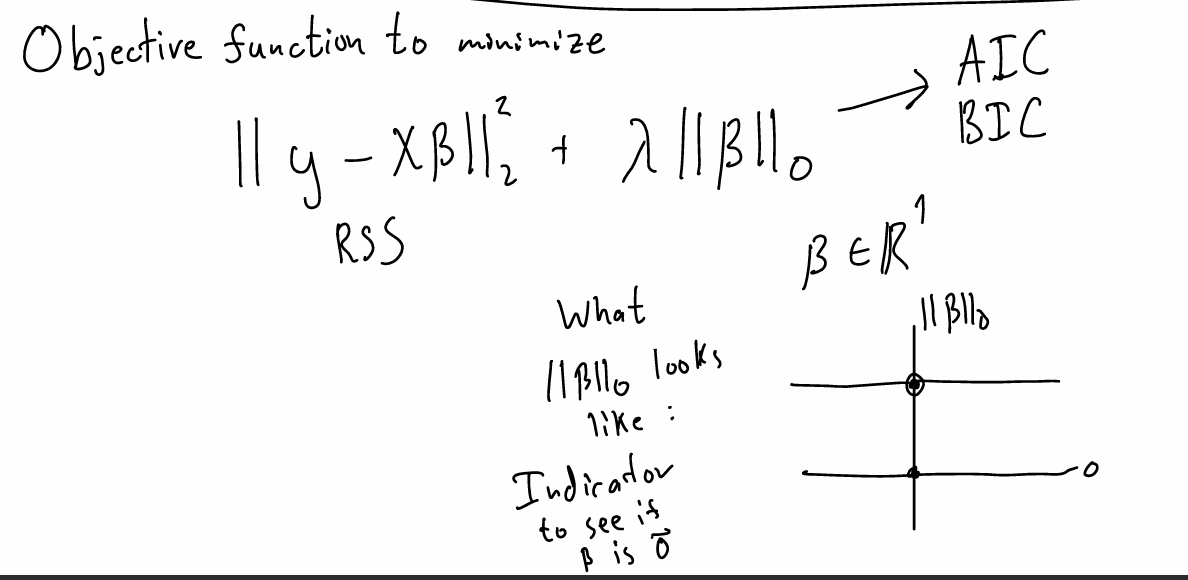 Objective function to minimize
|| y - Xβ ||₂² + λ ||β||₀ → AIC
BIC
RSS
β ∈ ℝ¹
What
||β||₀ looks
like :
Indicator
to see if
β is 0⃗
||β||₀
0